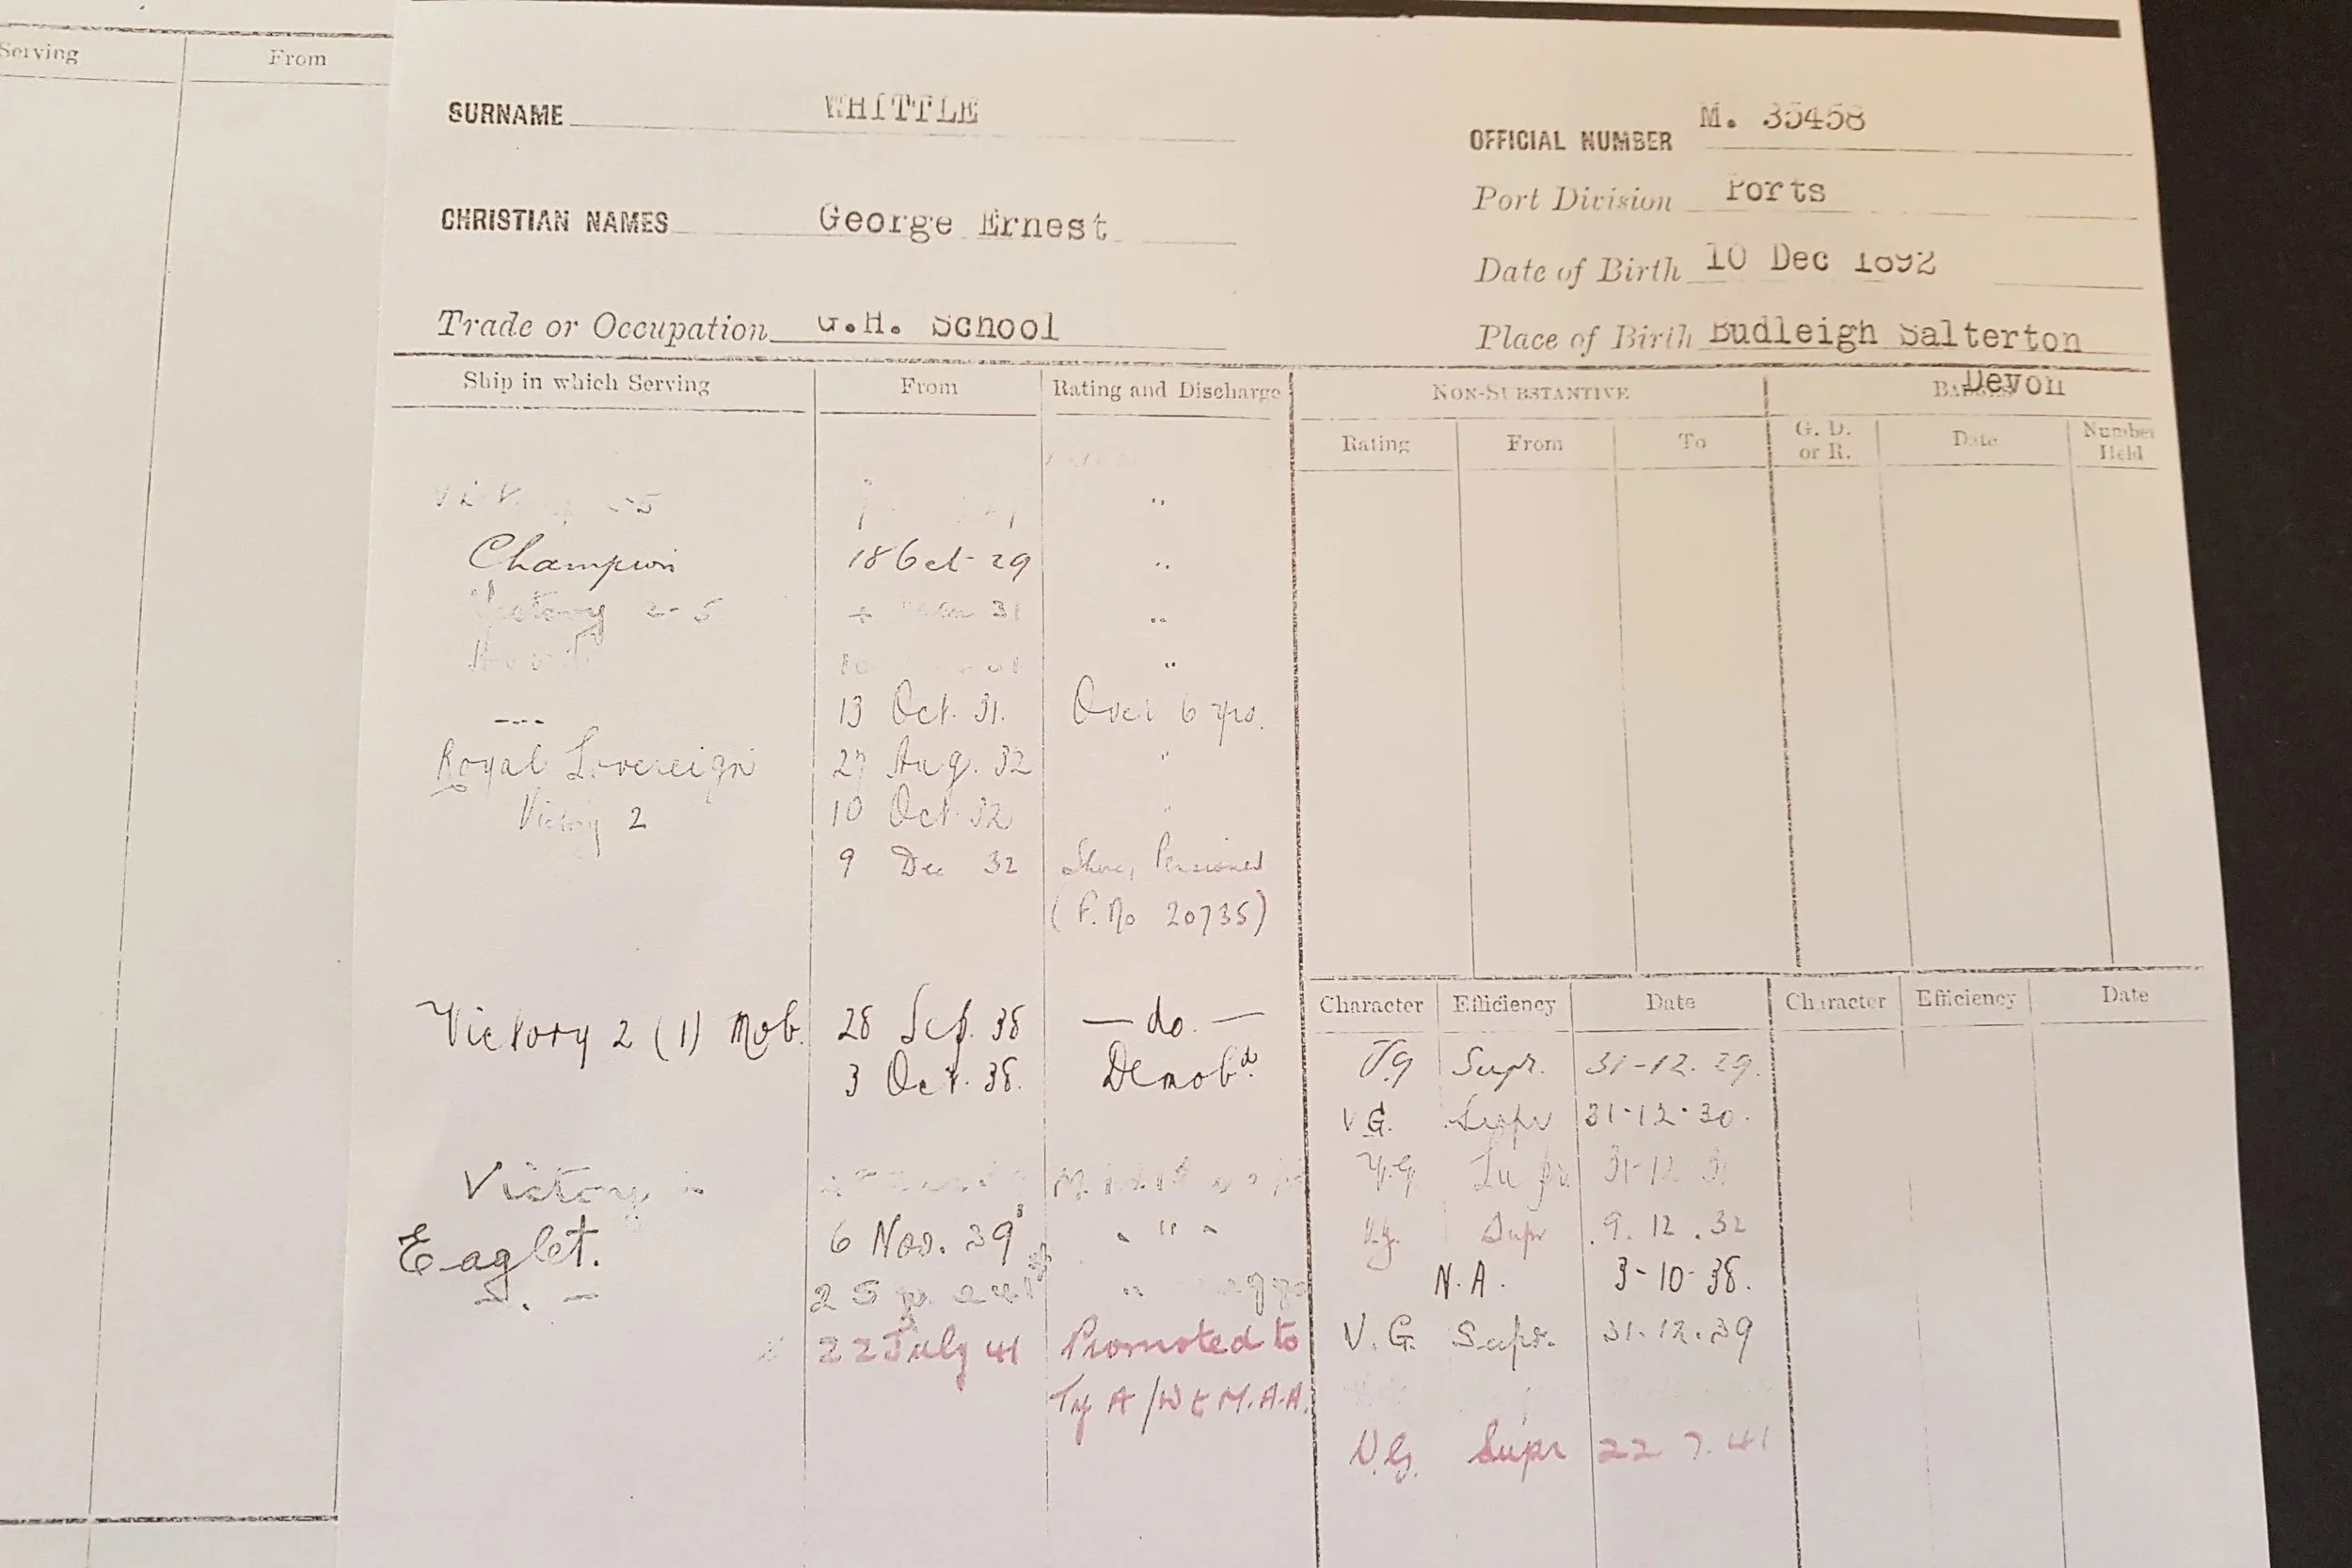 Serving From
SURNAME WHITTLE
OFFICIAL NUMBER M. 35458
CHRISTIAN NAMES George Ernest
Port Division Ports
Date of Birth 10 Dec 1892
Trade or Occupation G.H. School
Place of Birth Budleigh Salterton
Devon
Ship in which Serving From Rating and Discharge
NON-SUBSTANTIVE BADGES
Rating From To G. D. or R. Date Number Held
"
Champion 18 Oct 29 "
Victory 2-5 31 "
"
---- 13 Oct. 31. Over 6 yrs.
Royal Sovereign 27 Aug. 32 "
Victory 2 10 Oct 32 "
9 Dec 32 Shore, Pensioned
(P. No 20735)
Victory 2 (1) Mob. 28 Sep. 38 — do. —
3 Oct. 38. Demobd.
Victory
Eaglet. 6 Nov. 39 "
— . — "
22 July 41 Promoted to
Ty A/Wt M.A.A.
Character Efficiency Date Character Efficiency Date
V.G Supr. 31-12-29.
V.G. Supr 31-12-30.
V.G. Supr 31-12
V.G. Supr 9.12.32
N.A. 3-10-38.
V.G. Supr. 31.12.39
V.G. Supr 22 7.41